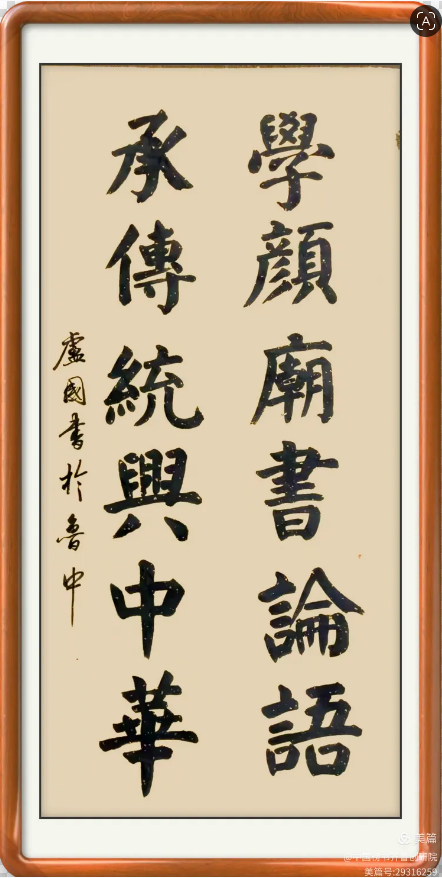 學顔廟書論語
承傳統興中華
盧國書於魯中
A
美篇
美篇号:29316259